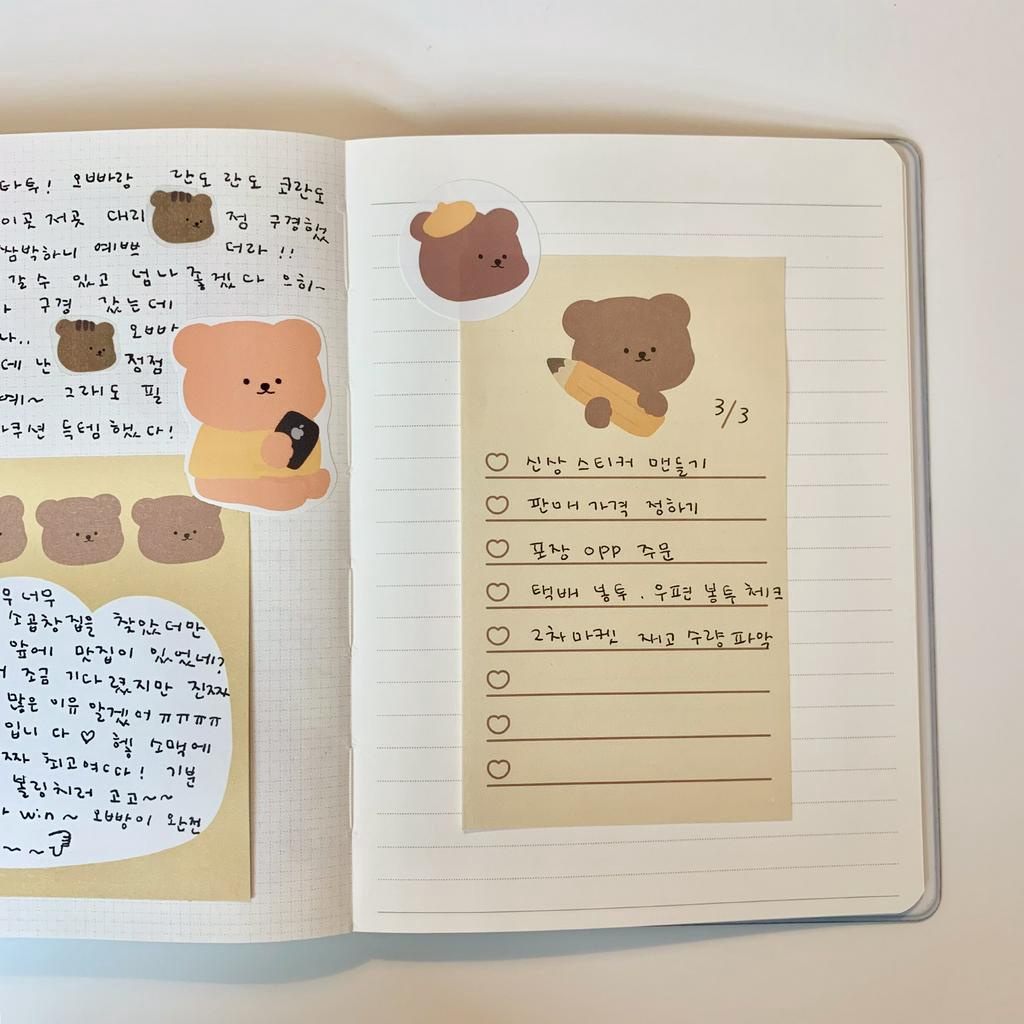 오빠랑 란도 란도 코란도
이곳 저곳 대리 점 구경했
쌈박하니 예쁘 더라!!
갈 수 있고 넘나 좋겠다 으히~
구경 갔는데
나.. 오빠
데 난 정점
예~ 그래도 필
득템했다!
너무
소곱창집을 찾았더만
앞에 맛집이 있었네?
조금 기다렸지만 진짜
많은 이유 알겠어 ㅠㅠㅠㅠ
입니다♡ 헿 소맥에
최고여따! 기분
볼링치러 고고~~
win~ 오빵이 완전
~~
3/3
신상 스티커 맨들기
판매 가격 정하기
포장 opp 주문
택배 봉투 . 우편 봉투 체크
2차마켓 재고 수량 파악